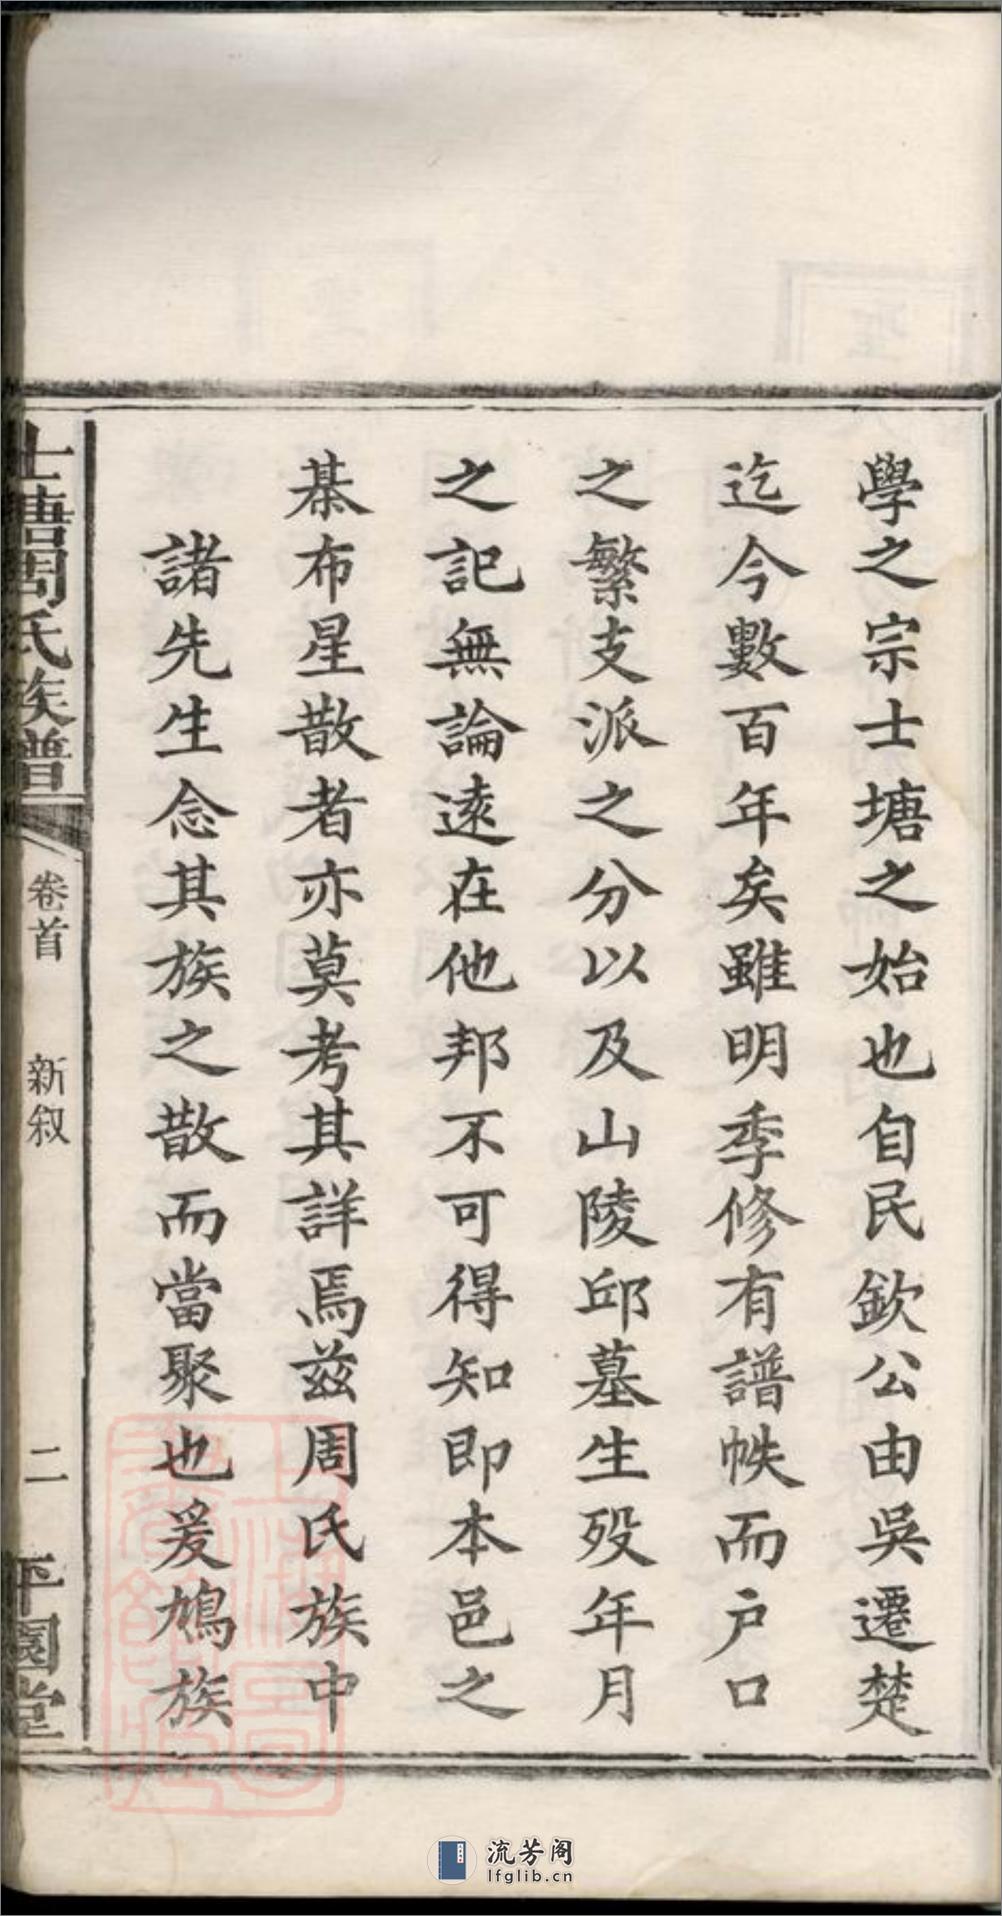 學之宗士塘之始也自民欽公由吳遷楚
迄今數百年矣雖明季修有譜帙而户口
之繁支派之分以及山陵邱墓生殁年月
之記無論遠在他邦不可得知即本邑之
棊布星散者亦莫考其詳焉兹周氏族中
諸先生念其族之散而當聚也爰鳩族
士塘周氏族譜
卷首 新叙 二
平園堂
流芳阁
lfglib.cn